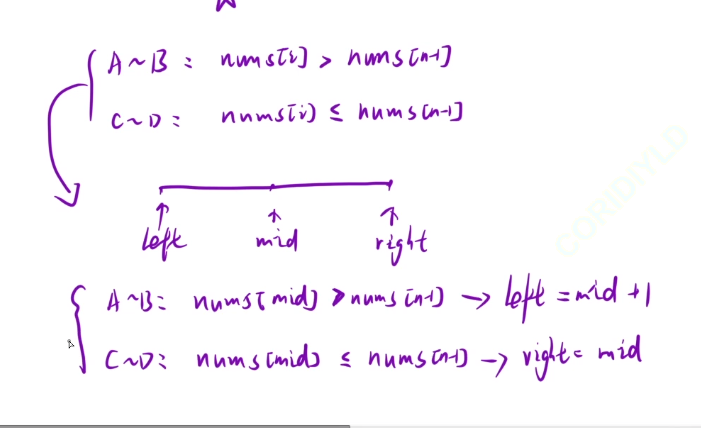 A~B: nums[i] > nums[n-1]
C~D: nums[i] ≤ nums[n-1]
left mid right
A~B: nums[mid] > nums[n-1] → left = mid + 1
C~D: nums[mid] ≤ nums[n-1] → right = mid
CORIDIYLD